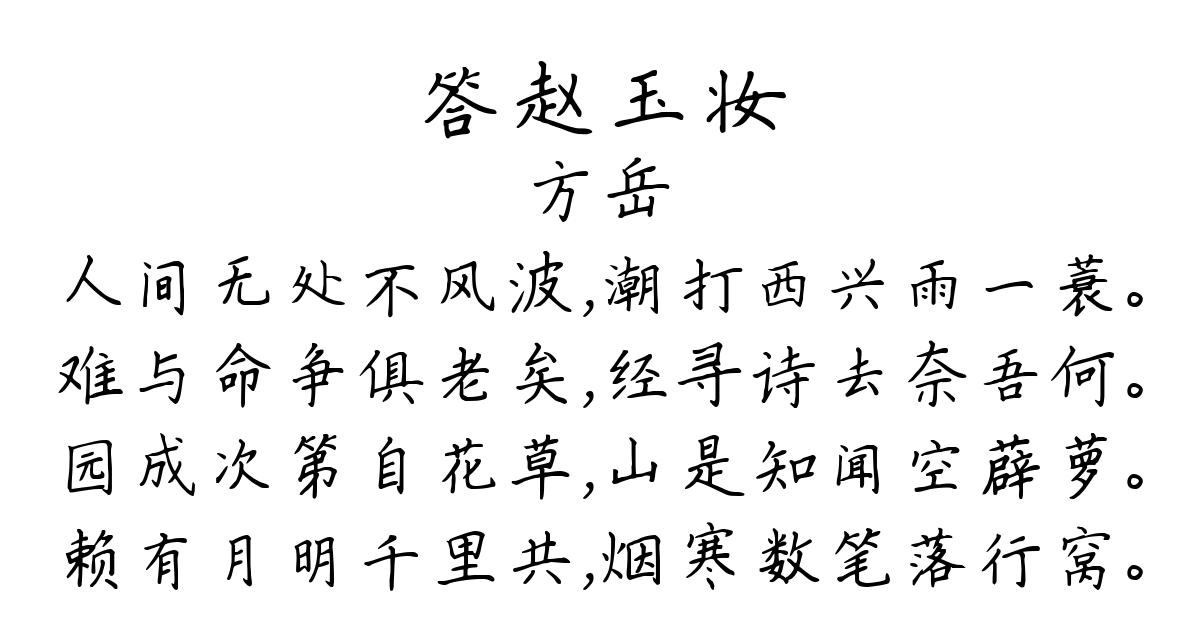 答赵玉妆
方岳
人间无处不风波,潮打西兴雨一蓑。
难与命争俱老矣,经寻诗去奈吾何。
园成次第自花草,山是知闻空薜萝。
赖有月明千里共,烟寒数笔落行窝。